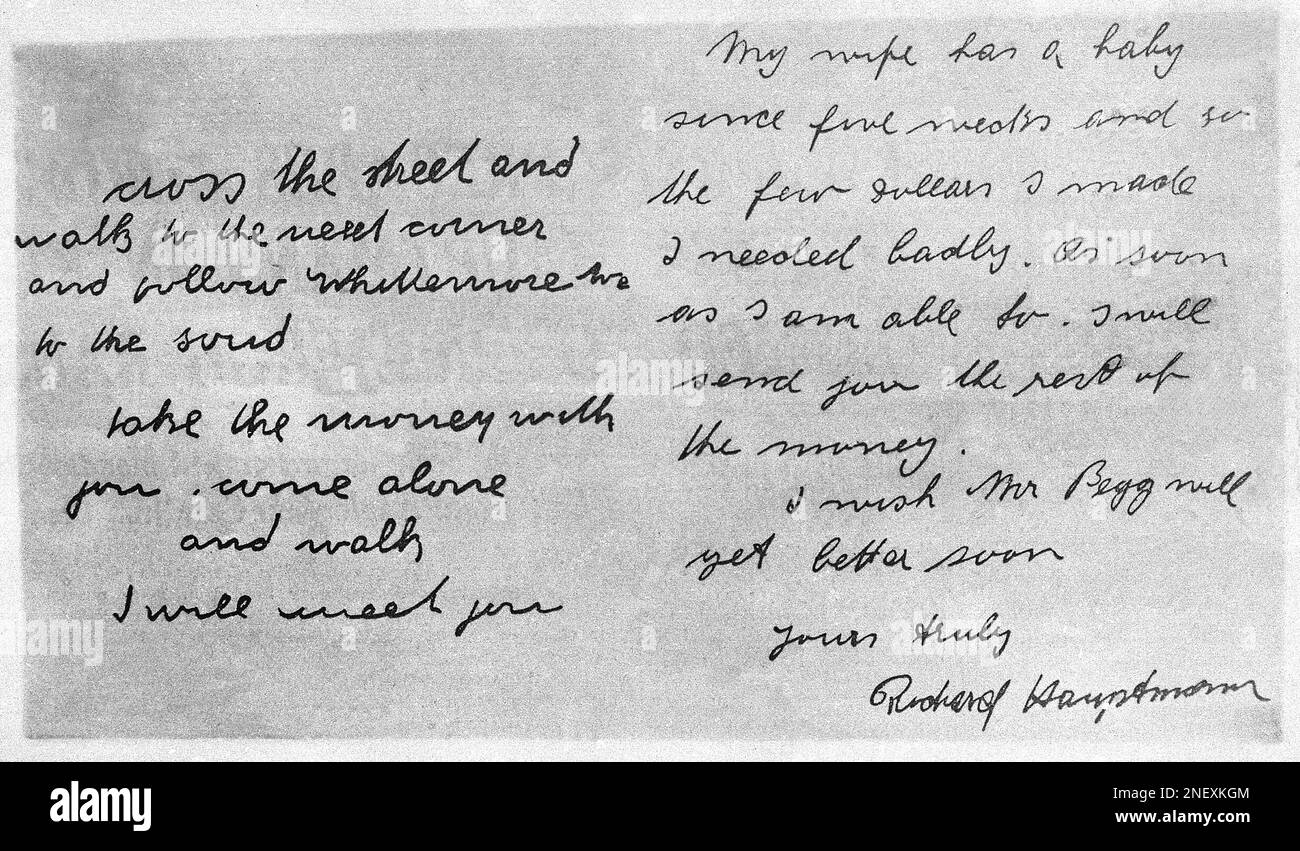 cross the street and
walk to the next corner
and follow Whittemore Ave
to the soud
take the money with
you. come alone
and walk
I will meet you
My wife has a baby
since five weeks and so
the few dollars I made
I needed badly. As soon
as I am able to. I will
send you the rest of
the money.
I wish Mr Pegg will
get better soon
Yours truly
Richard Hauptmann
alamy
Image ID: 2NEXKGM
www.alamy.com